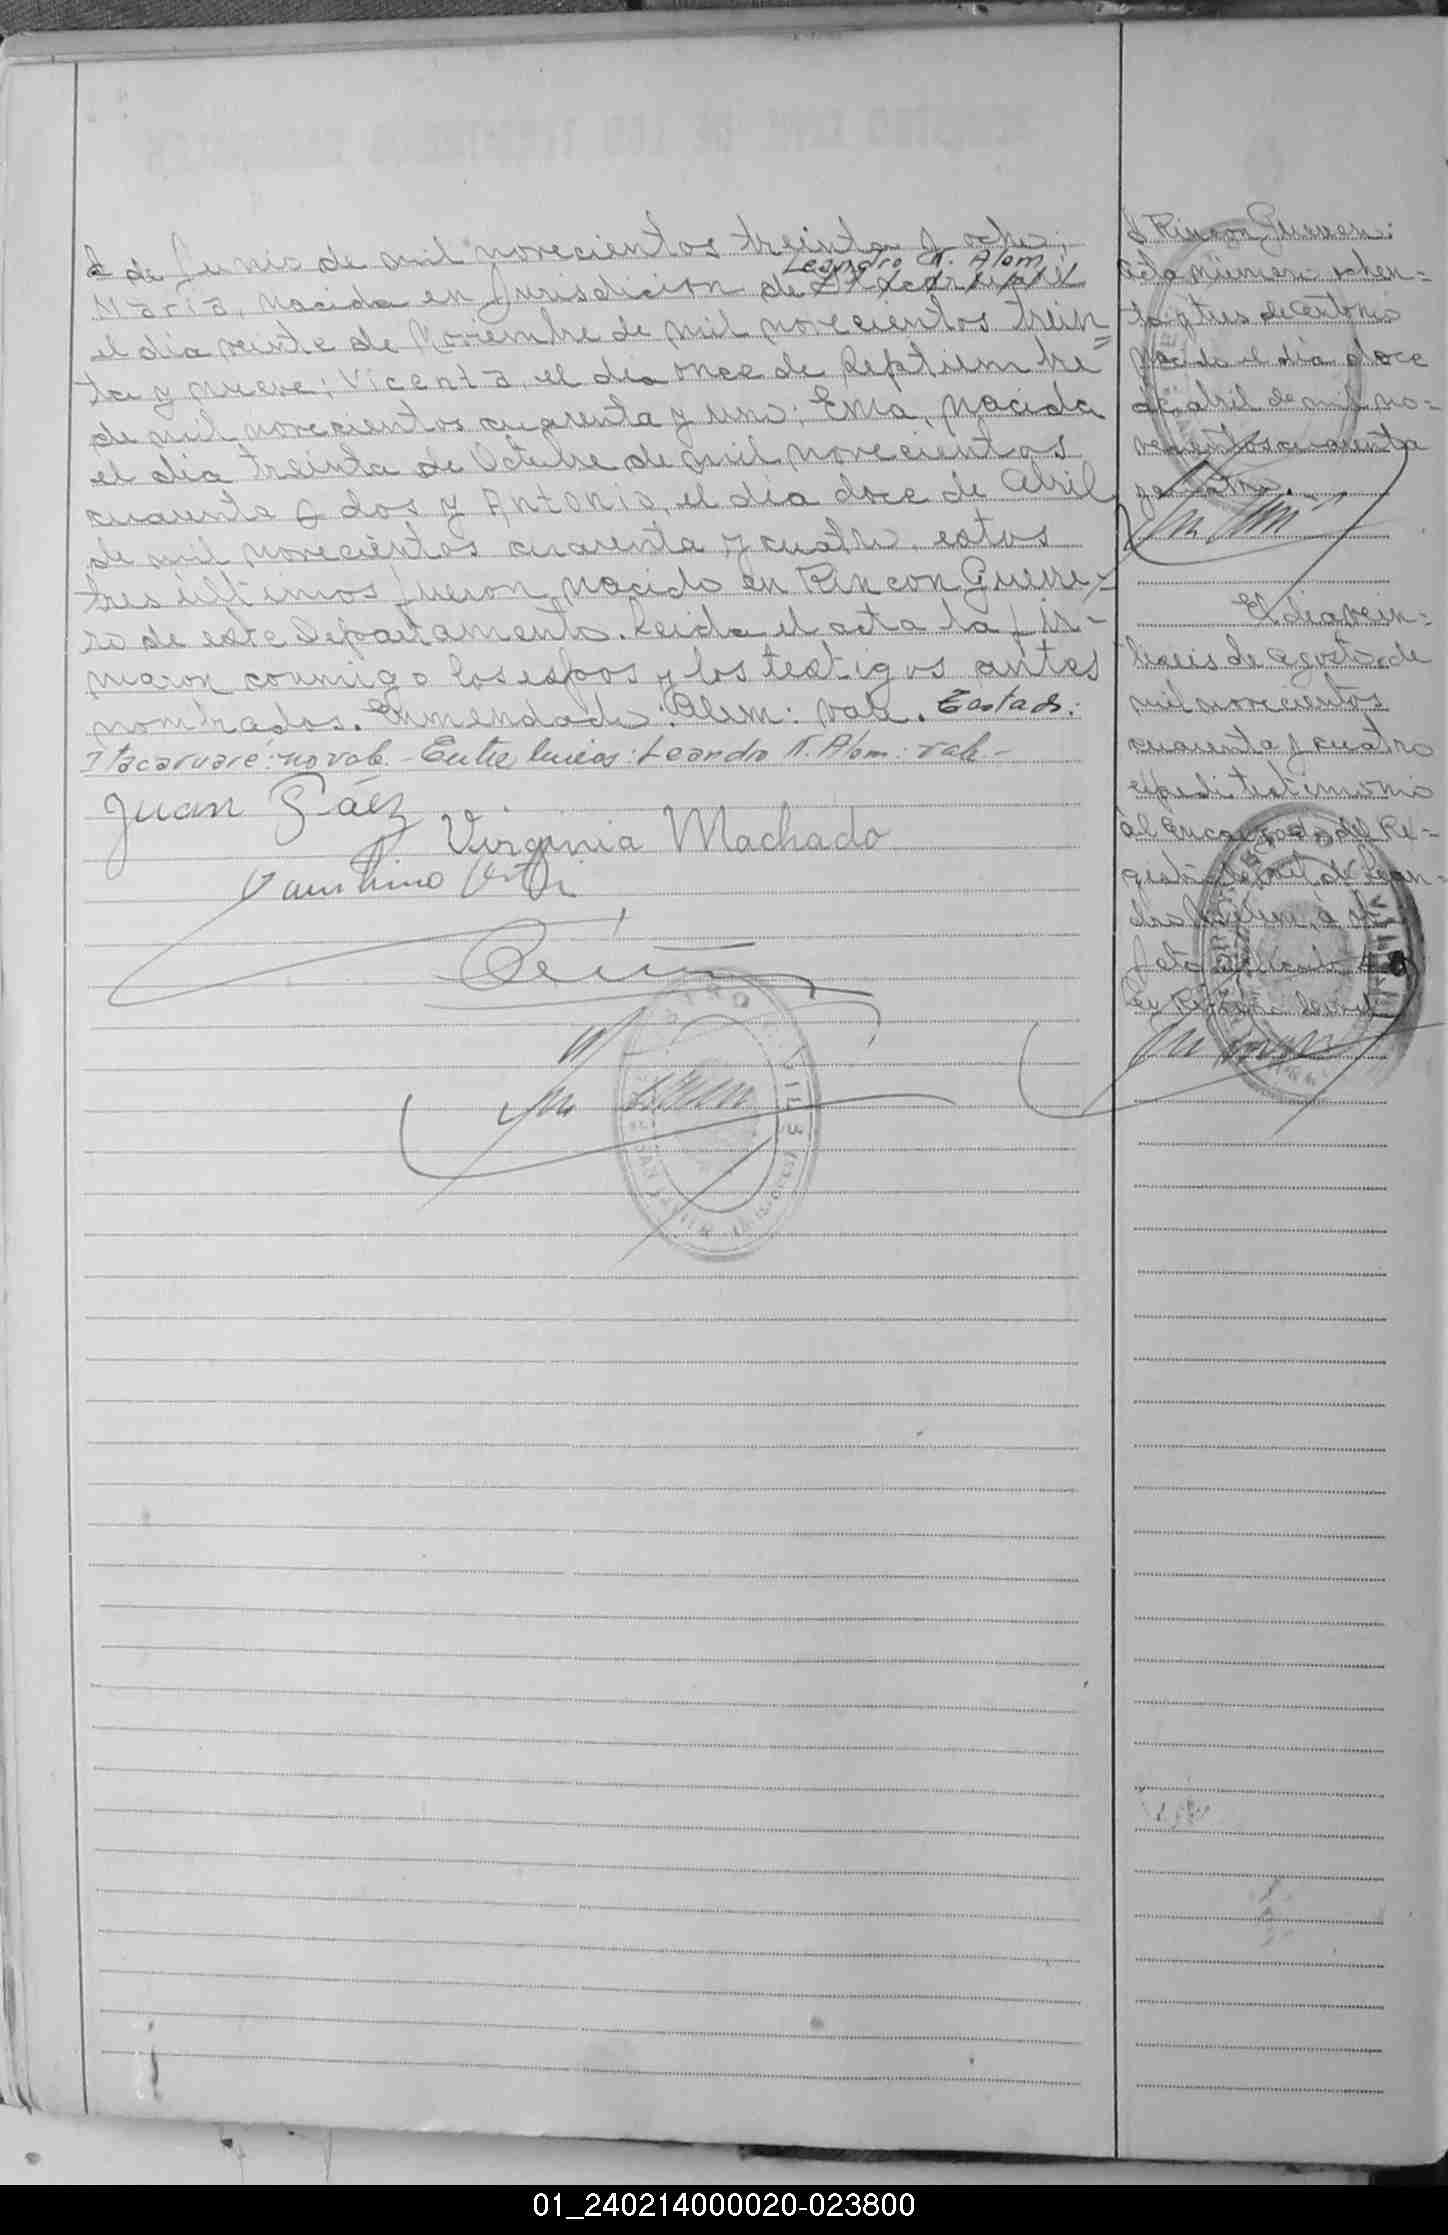 de Junio de mil novecientos treinta y ocho;
Leandro N. Alem
Maria, nacida en Jurisdicion de Itacaruaré
el dia veinte de Noviembre de mil novecientos trein
ta y nueve; Vicenta, el dia once de Septiembre
de mil novecientos cuarenta y uno; Ema, nacida
el dia treinta de Octubre de mil novecientos
cuarenta y dos y Antonio, el dia doce de Abril
de mil novecientos cuarenta y cuatro, estos
tres ultimos fueron nacido en Rincon Guerre-
ro de este Departamento. Leida el acta la fir-
maron conmigo los espos y los testigos antes
nombrados. Enmendado: Alem: vale. Testado:
Itacaruaré: no vale.- Entre lineas: Leandro N. Alem: vale.-
Juan Sáez
Virginia Machado
Faustino
Rincon Guerrero:
acta número ochen=
ta y tres de Antonio
nacido el dia doce
de abril de mil no=
vecientos cuarenta
y cuatro.
El dia vein=
tiseis de agosto de
mil novecientos
cuarenta y cuatro
expedi testimonio
al Encargado del Re=
gistro Civil de Lean=
dro
01_240214000020-023800